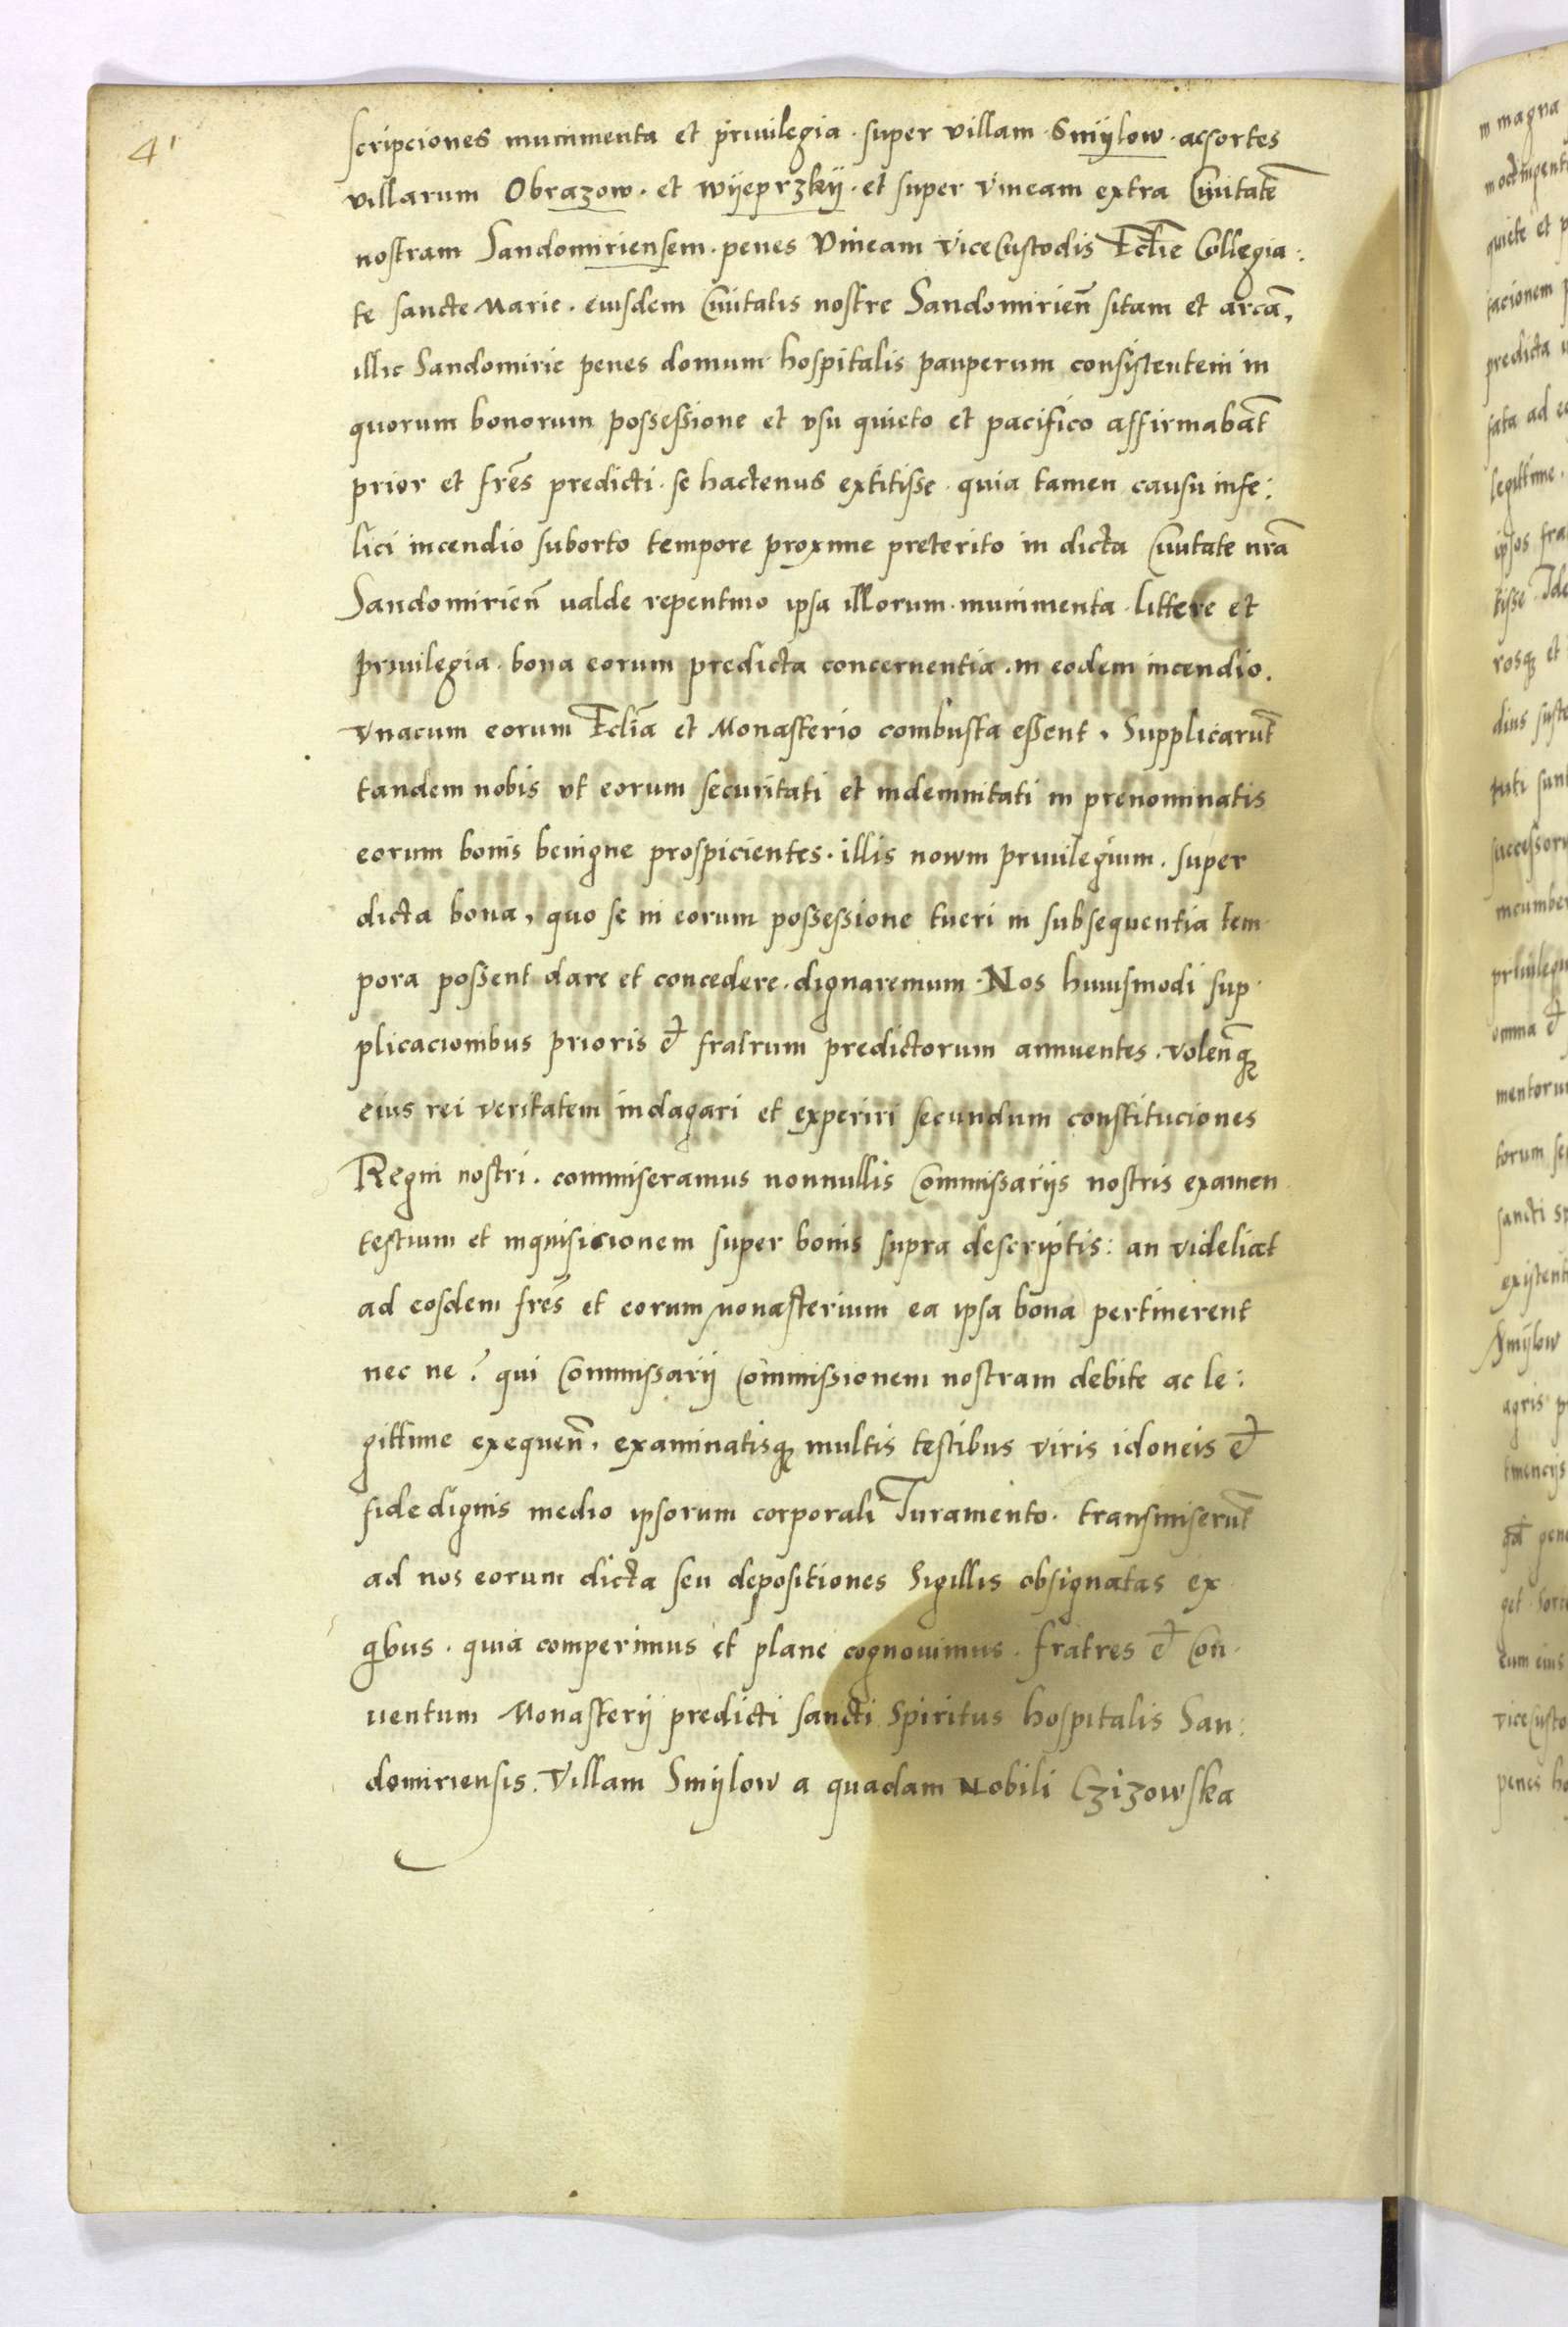 41
scripciones munimenta et priuilegia · super villam · Smÿlow · ac sortes
villarum Obrazow · et wÿeprzkÿ · et super vineam extra Ciuitatē
nostram Sandomiriensem · penes vineam viceCustodis Ecclīe Collegia :
te sancte Marie · eiusdem Ciuitatis nostre Sandomirieñ sitam et areā,
illic Sandomirie penes domum hospitalis pauperum consistentem in
quorum bonorum possessione et vsu quieto et pacifico affirmabāt
prior et fr̄es predicti · se hactenus extitisse · quia tamen causu infe :
lici incendio suborto tempore proxime preterito in dicta Ciuitate nr̄a
Sandomirieñ ualde repentino ipsa illorum · munimenta · littere et
priuilegia · bona eorum predicta concernentia · in eodem incendio .
vnacum eorum Ecclīa et Monasterio combusta essent . Supplicarūt
tandem nobis vt eorum securitati et indemnitati in prenominatis
eorum bonis benigne prospicientes · illis nowm priuilegium . super
dicta bona, quo se in eorum possessione tueri in subsequentia tem
pora possent dare et concedere · dignaremum · Nos huiusmodi sup
plicacionibus prioris et fratrum predictorum annuentes . volen̄q3
eius rei veritatem indagari et experiri secundum constituciones
Regni nostri . commiseramus nonnullis Commissarijs nostris examen
testium et inquisicionem super bonis supra descriptis : an videlicet
ad eosdem fr̄es et eorum monasterium ea ipsa bona pertinerent
nec ne ? qui Commissarij Commissionem nostram debite ac le :
gittime exequeñ . examinatisq3 multis testibus viris idoneis et
fidedignis medio ipsorum corporali Iuramento · transmiserūt
ad nos eorum dicta seu depositiones Sigillis obsignatas ex
qͥbus · quia comperimus et plane cognouimus · fratres et Con
uentum Monasterij predicti sancti Spiritus hospitalis San :
domiriensis . Villam Smÿlow a quadam Nobili Czizowska